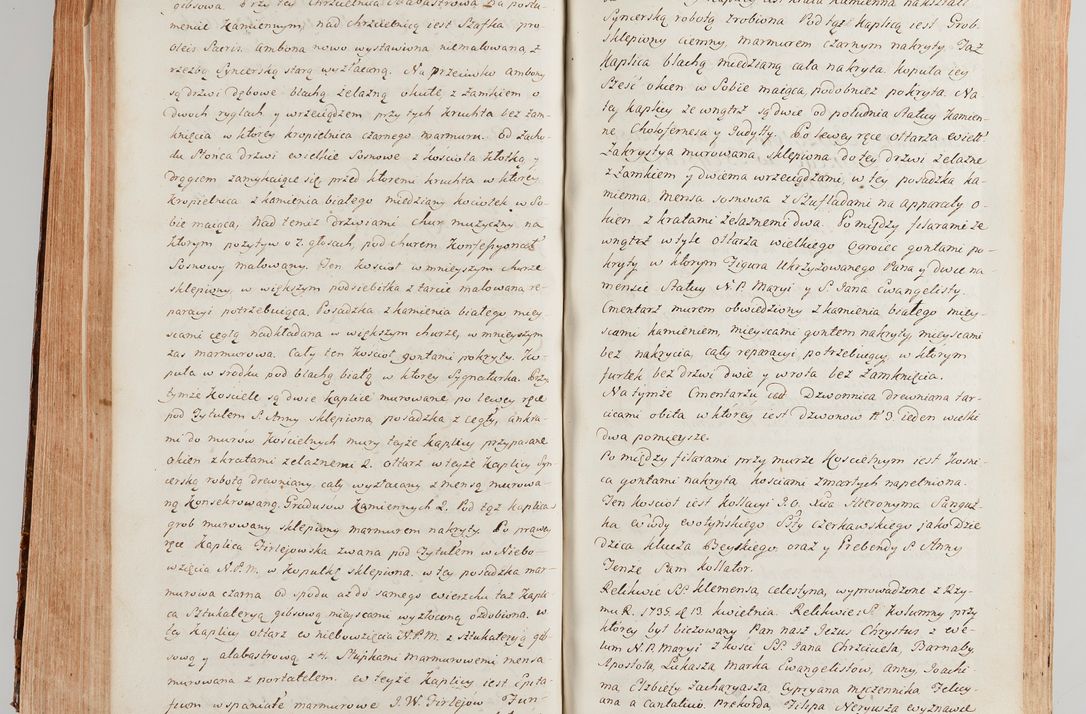 gibsowa. Przy tey Chrzcielnica Alabastrowa Da postu-
mencie kamiennym, nad chrzcielnicą iest Szafka pro
oleis Sacris. Ambona nowo wystawiona niemalowana, z
rzezbą Snycerską starą wyzłacaną. Na przeciwko ambony
są drzwi dębowe blachą żelazną okute, z zamkiem o
dwoch ryglach y wrzeciądzem przy tych kruchta bez zam-
knięcia w ktorey kropielnica czarnego marmuru. Od Zacho-
du Słońca drzwi wielkie Sosnowe z kosciola kłotką y
drągiem zamykaiące się, przed ktoremi kruchta w ktorey
kropielnica z kamienia białego miedziany kociołek w So-
bie maiąca, Nad temiż drzwiami chur muzyczny, na
ktorym pozytyw o 7. głosach, pod churem Konfessyonał
Sosnowy malowany. Ten Kościoł w mnieyszym churze
sklepiony, w większym podsiebitka z tarcic malowana re-
paracyi potrzebuiąca. Posadzka z kamienia białego miey-
scami cegłą nadkładana w większym churze, w mnieyszym
zas marmurowa. Cały ten Kościoł gontami pokryty. Ko-
puła w srodku pod blachą białą w ktorey Sygnaturka. Przy
tymże Kościele są dwie kaplice murowane po lewey ręce
pod Tytułem S. Anny sklepiona, posadzka z cegły, ankra-
mi do murow Kościelnych mury teyże Kaplicy przypasane
okien z kratami żelaznemi 2. ołtarz w teyże Kaplicy Sny-
cerską robotą drewniany, cały wyzłacany z mensą murowa-
ną konsekrowaną. Gradusow kamiennych 2. Pod tąż kaplicą
grob murowany sklepiony marmurem nakryty. Po prawey
ręce Kaplica Firlejowska zwana pod Tytułem w Niebo-
wzięcia N.P.M. w kopułkę sklepiona. w tey posadzka mar-
murowa czarna od spodu aż do samego wierzchu taż kapli-
ca Sztukateryą gibsową mieyscami wyzłoconą ozdobiona. w
tey kaplicy ołtarz w niebowzięcia N.P.M. z Sztukateryą gib-
sową y alabastrową z 4. Słupkami marmurowemi mensa
murowana z portatelem. w teyże kaplicy iest Epita-
fium wspaniałe marmurowe J.W. Firlejow Fun-
Snycerską robotą zrobiona Pod tąż kaplicą iest Grob
sklepiony ciemny, marmurem czarnym nakryty. Taż
kaplica blachą miedzianą cała nakryta, kopuła iey
Sześć okien w Sobie maiąca, podobnież pokryta. Na
tey kaplicy zewnątrz są dwie od południa Statuy kamien-
ne Cholofernesa y Judytty. Po lewey ręce ołtarza wielk:
Zakrystya murowana, sklepiona do tey drzwi żelazne
z Zamkiem y dwiema wrzeciądzami, w tey posadzka ka-
mienna, mensa sosnowa z Szufladami na apparaty o-
kien z kratami żelaznemi dwa. Po między filarami ze
wngtrz w tyle ołtarza wielkiego Ogroiec gontami po-
kryty w ktorym Figura Ukrzyżowanego Pana y dwie na
mensie Statuy N.P. Maryi y S. Jana Ewangelisty.
Cmentarz murem obwiedziony z kamienia białego miey-
scami kamieniem, mieyscami gontem nakryty, mieyscami
bez nakrycia, cały reparacyi potrzebuiący, w ktorym
furtek bez drzwi dwie y wrota bez zamknięcia.
Na tymże Cmentarzu iest Dzwonnica drewniana tar-
cicami obita w ktorey iest dzwonow N° 3. ieden wielki
dwa pomnieysze.
Po między filarami przy murze Kościelnym iest kośni-
ca gontami nakryta, kościami zmarłych napełniona.
Ten Kościoł iest kollacyi J.O. Xcia Hieronyma Sangusz-
ka Wwody Wołyńskiego Stty Czerkawskiego jako Dzie
dzica klucza Beyskiego oraz y Prebendy S. Anny
Tenże Sam Kollator.
Relikwie SS. Klemensa, Celestyna, wyprowadzone z Rzy-
mu R. 1735 d. 13 kwietnia. Relikwie S. Kolumny przy
którey był bieżowany Pan nasz Jezus Chrystus z we-
lum N.P. Maryi z kości SS. Jana Chrzciciela, Barnaby
Apostoła, Łukasza, Marka Ewangelistów, Anny, Joachi-
ma, Elzbiety Zacharyasza, Cypryana męczennika Felicy-
ana a Cantalicio. Prekorda Filipa Neryusza wyznawcę